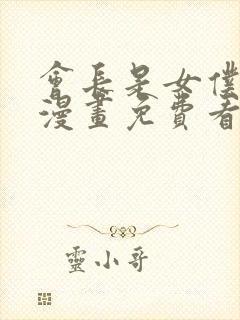 會長是女僕
漫畫免費看
靈小哥